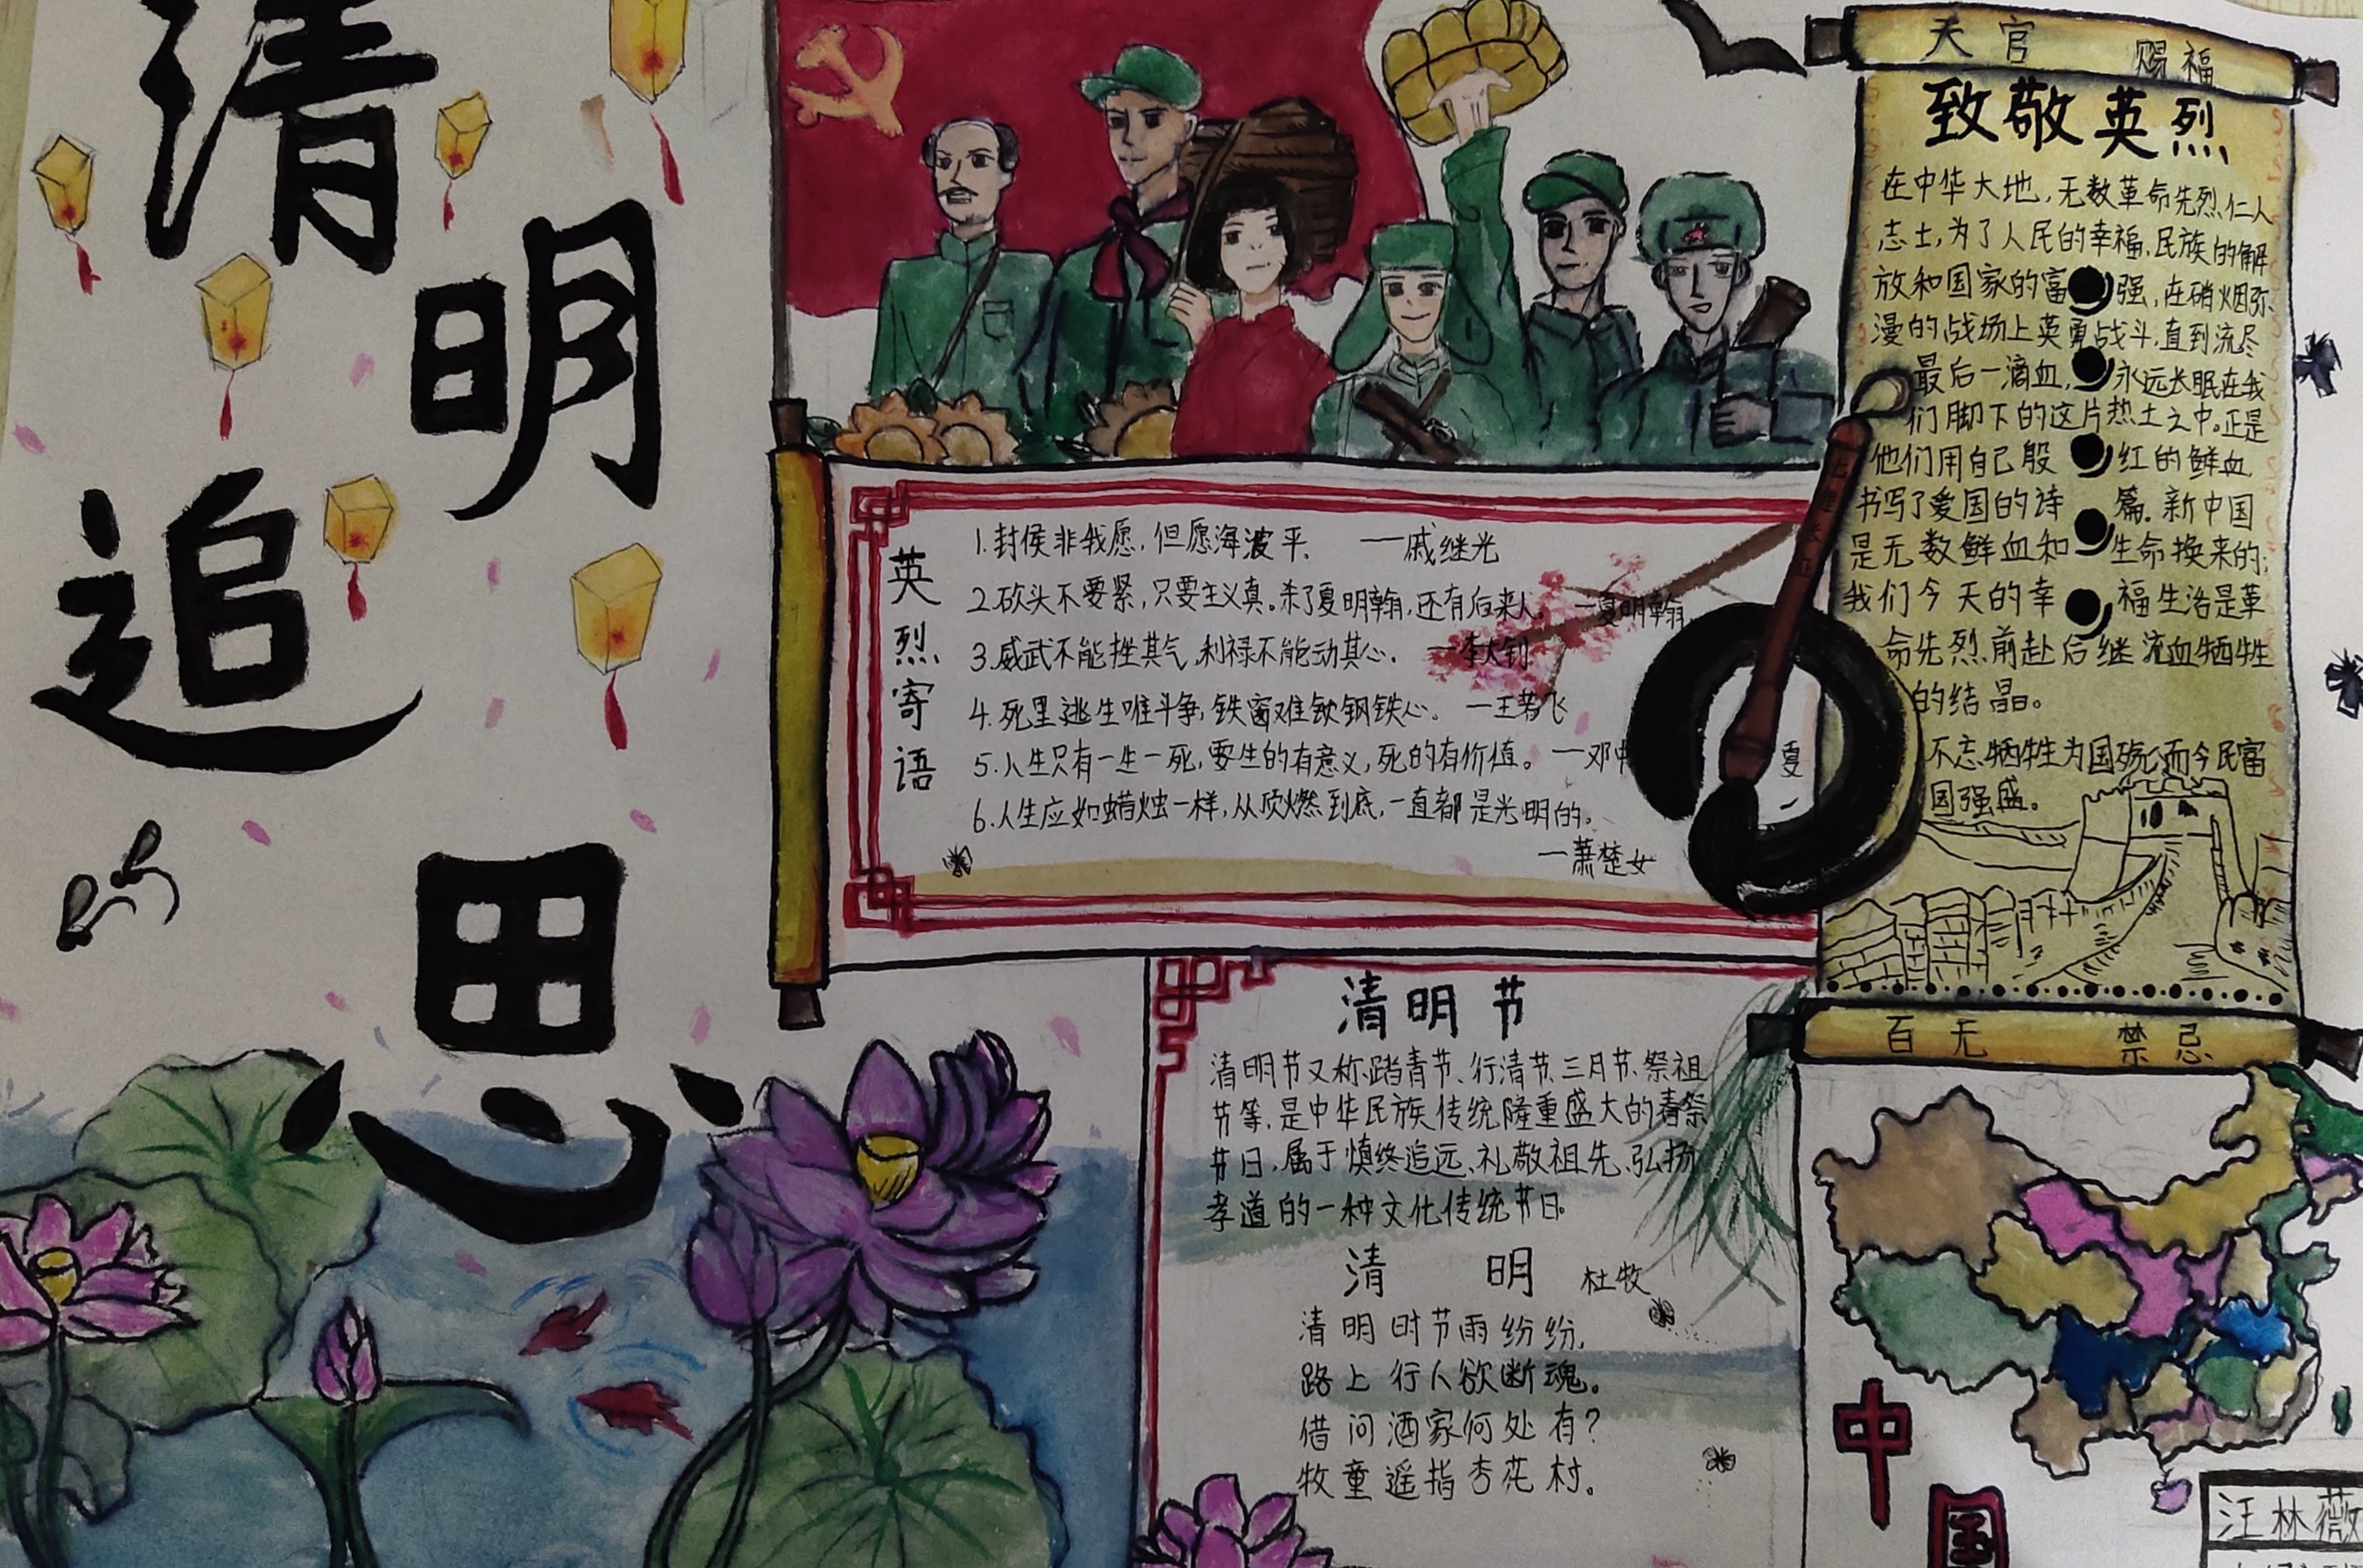 清明追思
英烈寄语
1.封侯非我愿,但愿海波平. ——戚继光
2.砍头不要紧,只要主义真。杀了夏明翰,还有后来人。 —夏明翰
3.威武不能挫其气,利禄不能动其心. —李大钊
4.死里逃生唯斗争,铁窗难锁钢铁心。 —王若飞
5.人生只有一生一死,要生的有意义,死的有价值。 ——邓中夏
6.人生应如蜡烛一样,从顶燃到底,一直都是光明的。
—萧楚女
清明节
清明节又称踏青节、行清节、三月节、祭祖
节等,是中华民族传统隆重盛大的春祭
节日,属于慎终追远、礼敬祖先、弘扬
孝道的一种文化传统节日.
清 明 杜牧
清明时节雨纷纷,
路上行人欲断魂。
借问酒家何处有?
牧童遥指杏花村。
天官 赐福
致敬英烈
在中华大地,无数革命先烈,仁人
志士,为了人民的幸福,民族的解
放和国家的富强,在硝烟弥
漫的战场上英勇战斗,直到流尽
最后一滴血,永远长眠在我
们脚下的这片热土之中。正是
他们用自己殷红的鲜血
书写了爱国的诗篇.新中国
是无数鲜血和生命换来的;
我们今天的幸福生活是革
命先烈前赴后继流血牺牲
的结晶。
不忘牺牲为国殇,而今民富
国强盛。
百无 禁忌
中国
汪林薇